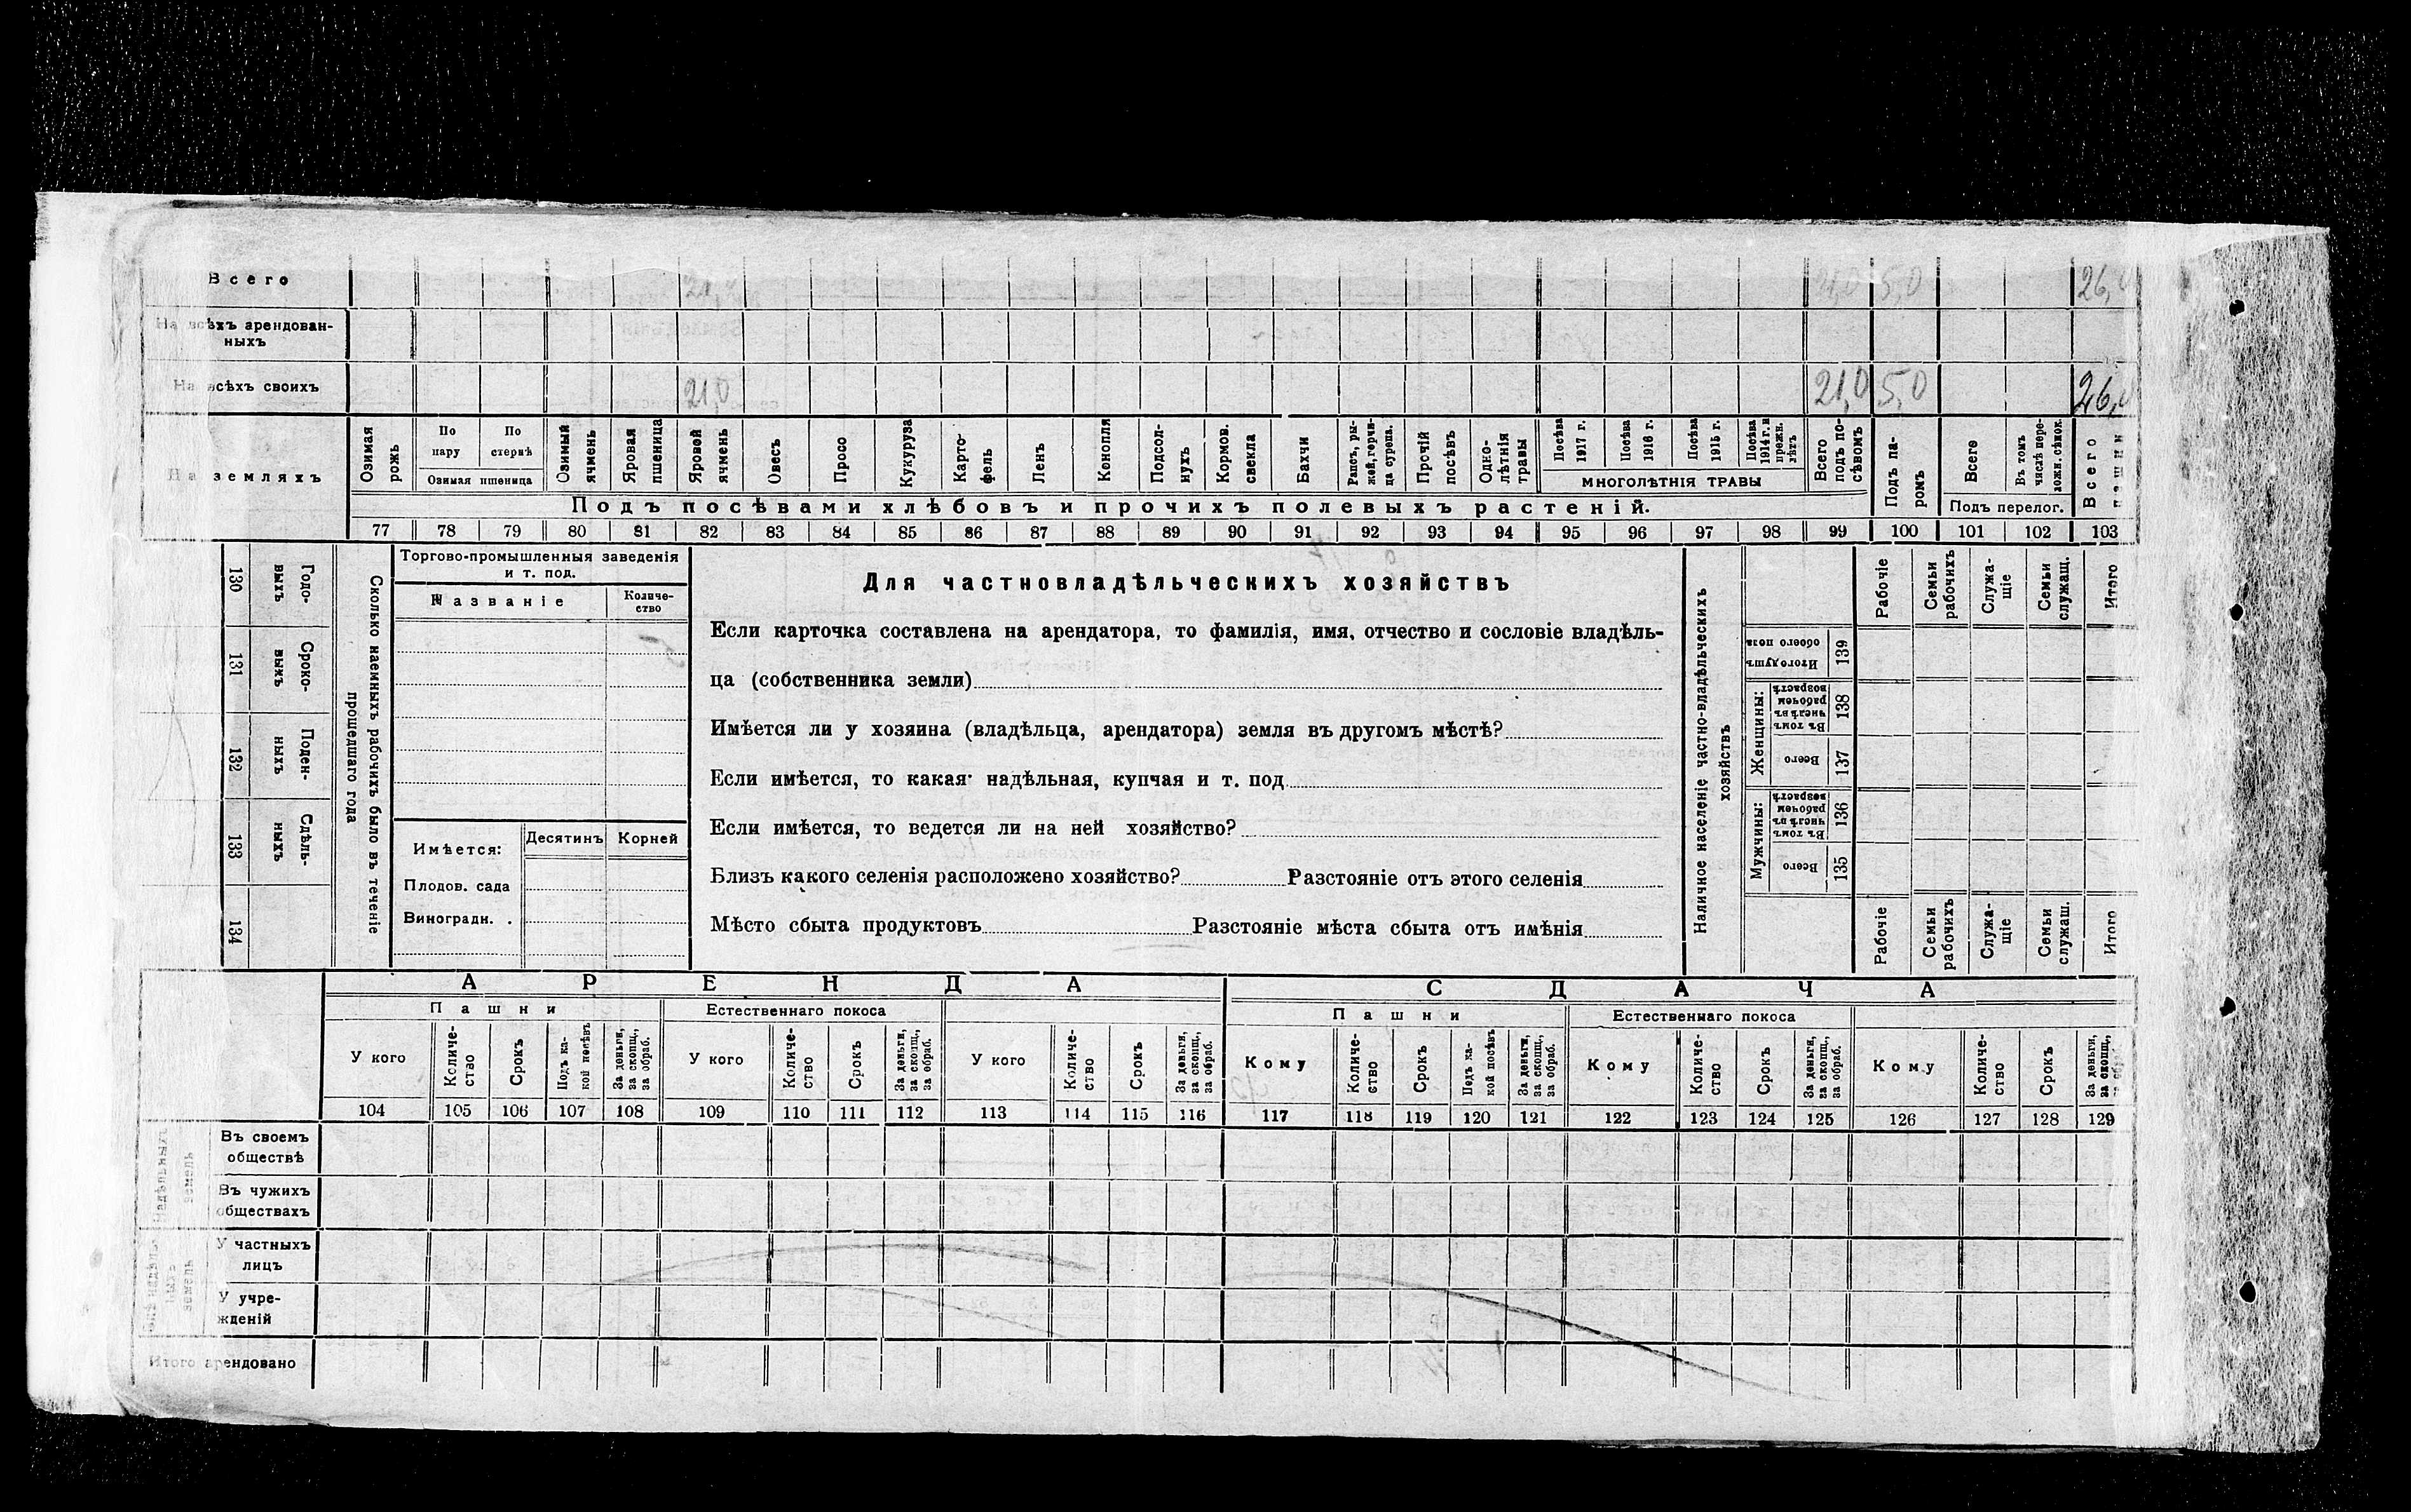 Всего 21,0 21,0 5,0 26,0
На всѣхъ арендован-
ныхъ
На всѣхъ своихъ 21,0 21,0 5,0 26,0
На земляхъ
Озимая рожь
По пару
По стернѣ
Озимая пшеница
Озимый ячмень
Яровая пшеница
Яровой ячмень
Овесъ
Просо
Кукуруза
Карто-
фель
Ленъ
Конопля
Подсол-
нухъ
Кормов. свекла
Бахчи
Рапсъ, ры-
жей, горчи-
ца сурепа.
Прочій посѣвъ
Одно-
лѣтнія травы
Посѣва 1917 г.
Посѣва 1916 г.
Посѣва 1915 г.
Посѣва 1914 г. и прежн. лѣтъ
МНОГОЛѢТНІЯ ТРАВЫ
Всего подъ по-
сѣвомъ
Подъ па-
ромъ
Всего
Въ томъ числѣ пере-
ложн. сѣнок.
Подъ перелог.
Всего пашни
Подъ посѣвами хлѣбовъ и прочихъ полевыхъ растеній.
77 78 79 80 81 82 83 84 85 86 87 88 89 90 91 92 93 94 95 96 97 98 99 100 101 102 103
130 Годо-
выхъ
131 Сроко-
выхъ
132 Поден-
ныхъ
133 Сдѣль-
ныхъ
134
Сколько наемныхъ рабочихъ было въ теченіе
прошедшаго года
Торгово-промышленныя заведенія
и т. под.
Названіе
Количе-
ство
Имѣется:
Десятинъ
Корней
Плодов. сада
Виноградн. .
Для частновладѣльческихъ хозяйствъ
Если карточка составлена на арендатора, то фамилія, имя, отчество и сословіе владѣль-
ца (собственника земли)
Имѣется ли у хозяина (владѣльца, арендатора) земля въ другомъ мѣстѣ?
Если имѣется, то какая: надѣльная, купчая и т. под.
Если имѣется, то ведется ли на ней хозяйство?
Близъ какого селенія расположено хозяйство? Разстояніе отъ этого селенія
Мѣсто сбыта продуктовъ Разстояніе мѣста сбыта отъ имѣнія
Наличное населеніе частно-владѣльческихъ
хозяйствъ
Итого душъ обоего пола 139
Женщины:
Въ томъ числѣ въ рабочемъ возрастѣ 138
Всего 137
Мужчины:
Въ томъ числѣ въ рабочемъ возрастѣ 136
Всего 135
Рабочіе
Семьи рабочихъ
Служа-
щіе
Семьи служащ.
Итого
Рабочіе
Семьи рабочихъ
Служа-
щіе
Семьи служащ.
Итого
АРЕНДА
СДАЧА
Пашни
Естественнаго покоса
Пашни
Естественнаго покоса
У кого
Количе-
ство
Срокъ
Подъ ка-
кой посѣвъ
За деньги, за скопщ., за обраб.
У кого
Количе-
ство
Срокъ
За деньги, за скопщ., за обраб.
У кого
Количе-
ство
Срокъ
За деньги, за скопщ., за обраб.
Кому
Количе-
ство
Срокъ
Подъ ка-
кой посѣвъ
За деньги, за скопщ., за обраб.
Кому
Количе-
ство
Срокъ
За деньги, за скопщ., за обраб.
Кому
Количе-
ство
Срокъ
За деньги, за скопщ., за обраб.
104 105 106 107 108 109 110 111 112 113 114 115 116 117 118 119 120 121 122 123 124 125 126 127 128 129
Надѣльныхъ
земель
Въ своемъ
обществѣ
Въ чужихъ
обществахъ
земель
У частныхъ
лицъ
У учре-
жденій
Итого арендовано